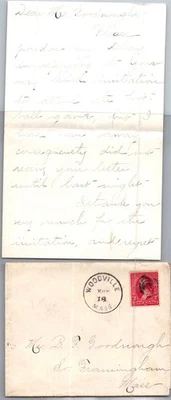 Dear Mr. Goodnough
Please
pardon my delay
in answering
kind invitation
to
ball game, but I
have been
consequently did not
receive your letter
until last night
I thank you
very much for the
invitation, and regret
WOODVILLE
18
MASS
Mr. B. F. Goodnough
So. Framingham
Mass